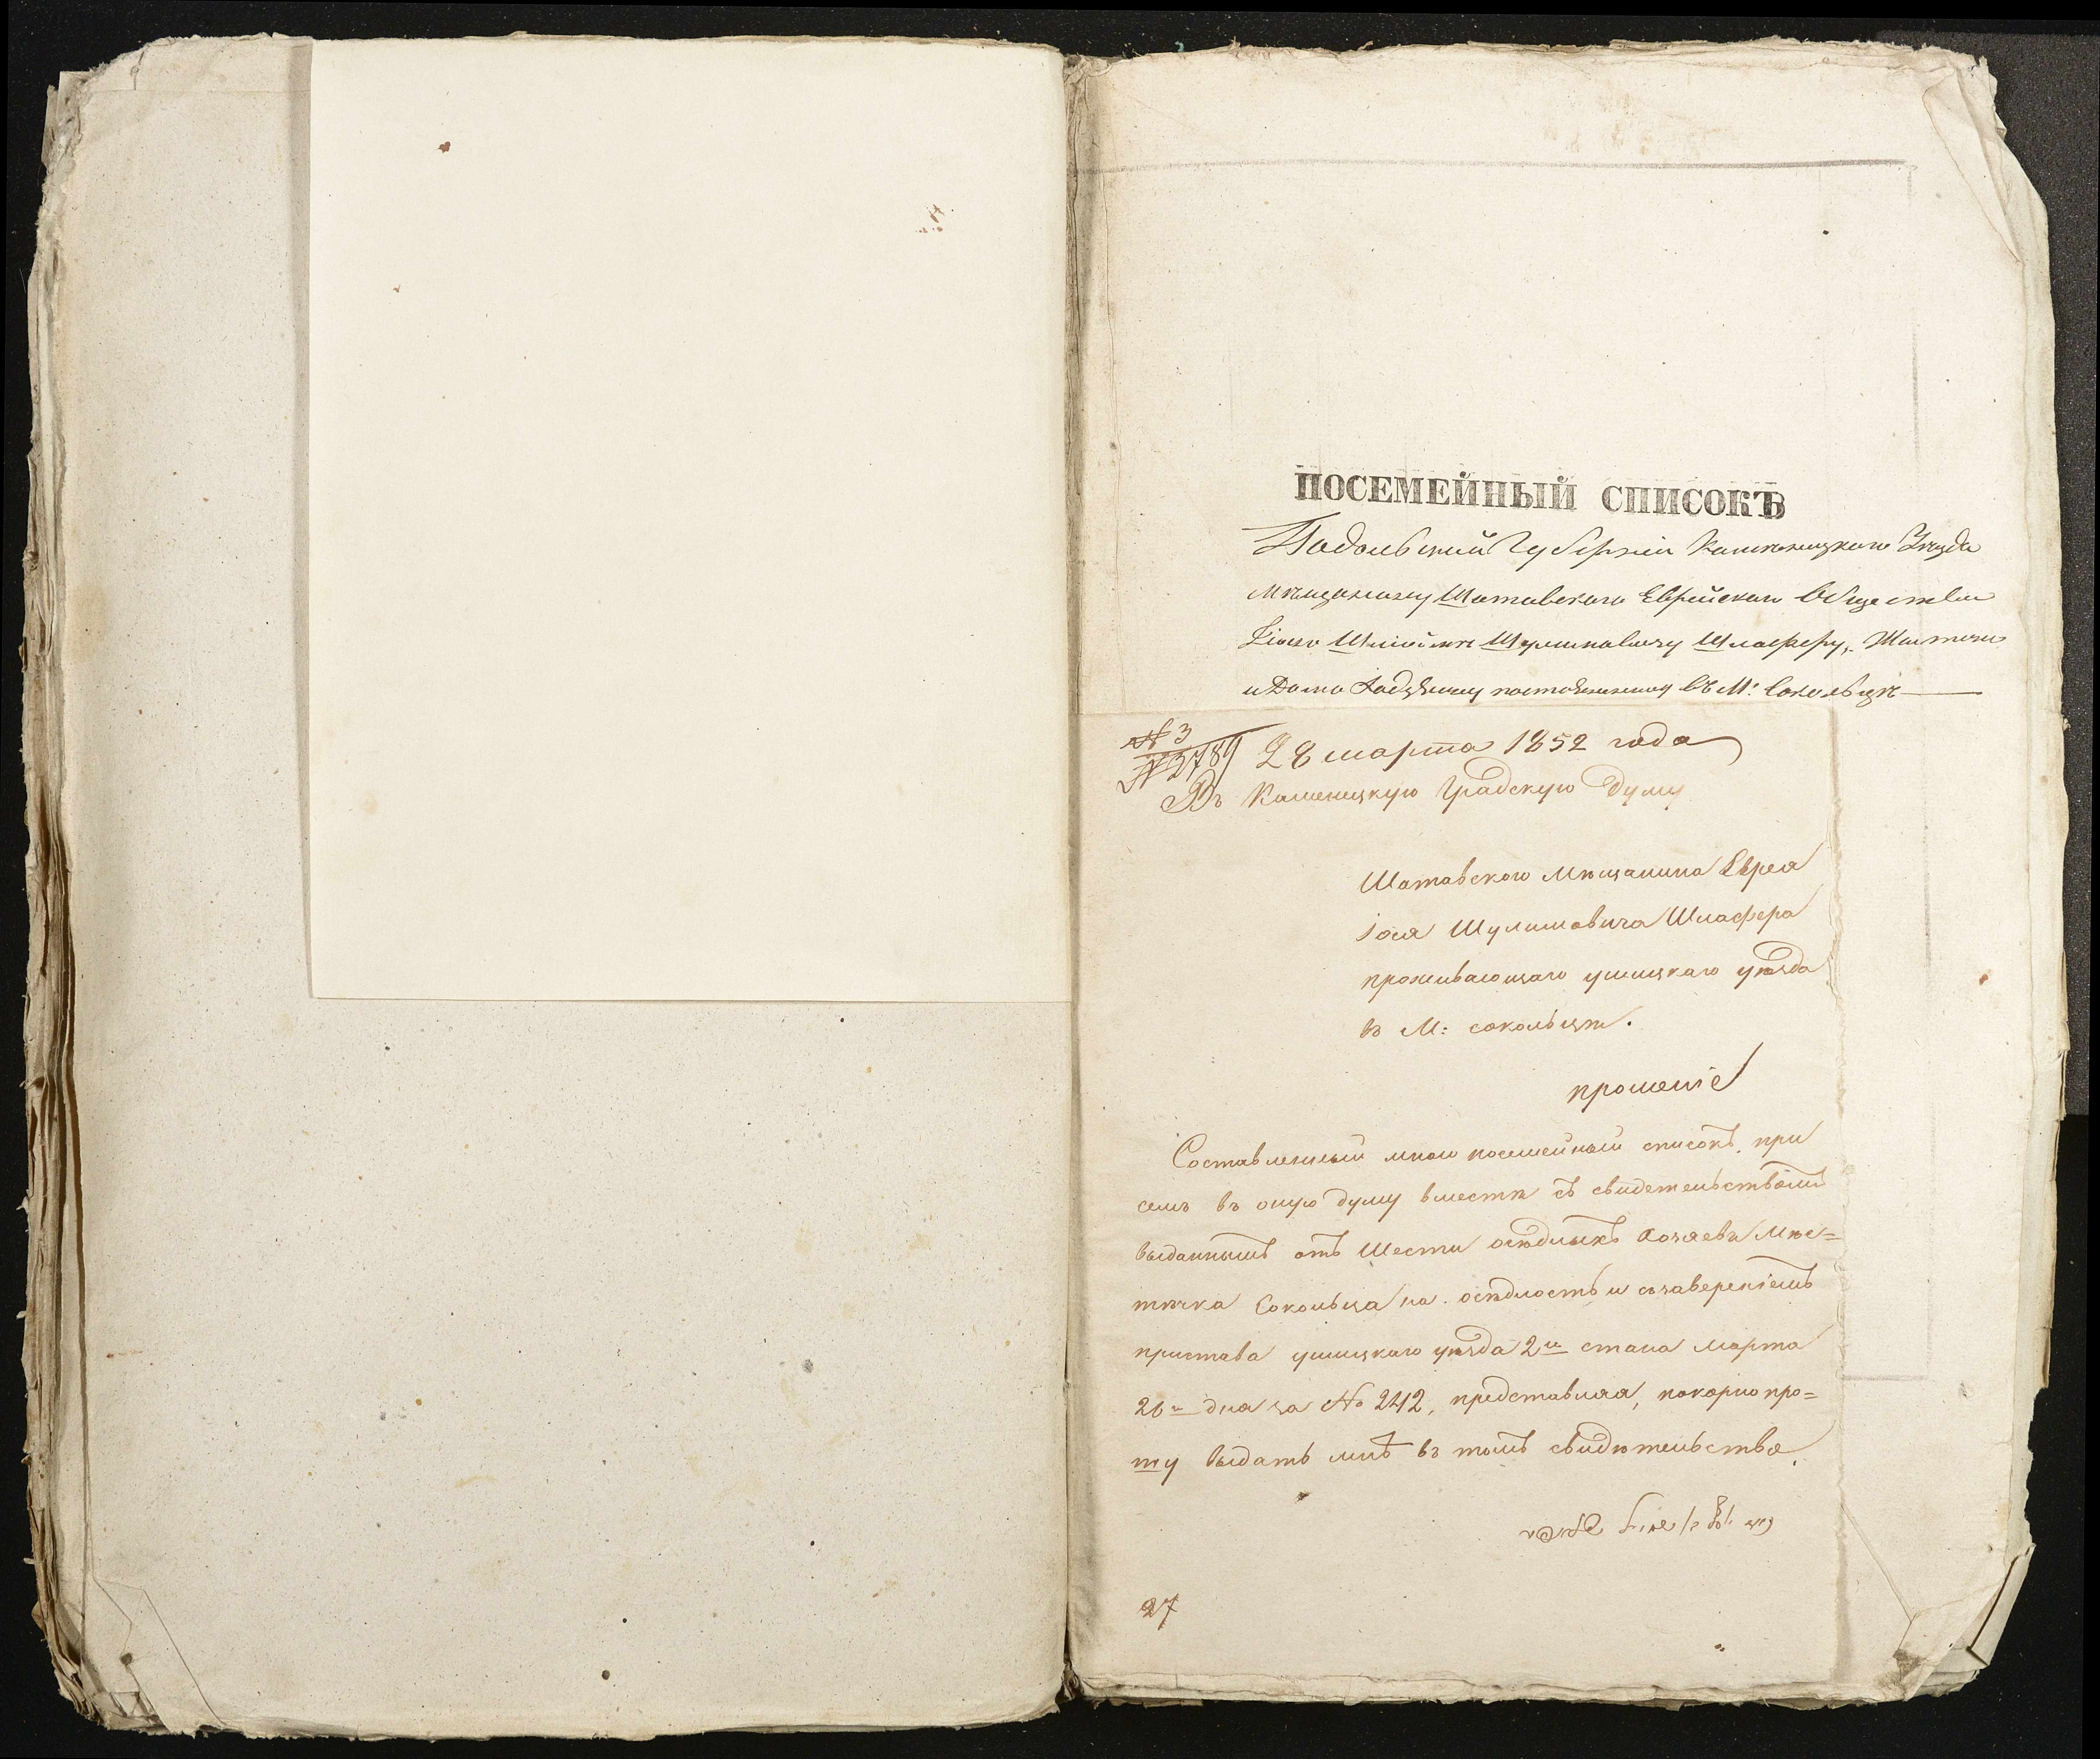 ПОСЕМЕЙНЫЙ СПИСОКЪ
Подольской Губерніи Каменецкаго Уезда
Мѣщанину Шатавского Еврейскаго Общества
Шліомѣ Шулимовичу Шлаферу,
и Домо въ М: Сокольцѣ
№ 3
№ 2789 28 марта 1852 года
Въ Каменецкую Градскую Думу
Шатавского Мѣщанина Еврея
Іося Шулимовича Шлафера
проживающаго ушицкаго уѣзда
въ М: сокольцѣ.
прошеніе
Составленный мною посемейный списокъ, при
семъ въ оную думу вместѣ съ свидетельствомъ
выданнымъ отъ Шести осѣдлыхъ хозяевъ Мѣс=
тѣчка Сокольца на осѣдлость и съ завереніемъ
пристава ушицкаго уѣзда 2го стана марта
26го дня за № 242, представляя, покорно про=
шу выдать мнѣ въ томъ свидѣтельство.
27